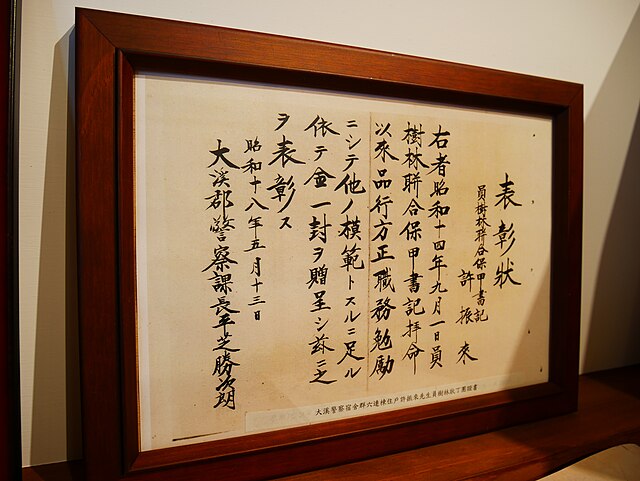 表彰狀
員樹林聯合保甲書記
許振來
右者昭和十四年九月一日員
樹林聯合保甲書記拝命
以來品行方正職務勉勵
ニシテ他ノ模範トスルニ足ル
依テ金一封ヲ贈呈シ茲ニ之
ヲ表彰ス
昭和十八年五月十三日
大溪郡警察課長平芝勝次朗
大溪警察宿舍群六連棟住戶許振來先生員樹林壯丁團證書